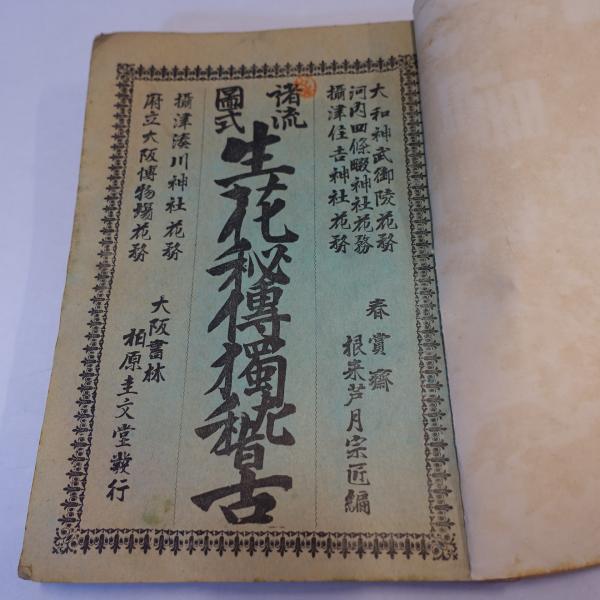 大和神武御陵花務
河内四條畷神社花務
攝津住吉神社花務
春賞齋
根来芦月宗匠編
諸流
圖式
生花秘傳獨稽古
攝津湊川神社花務
府立大阪博物場花務
大阪書林
柏原圭文堂發行